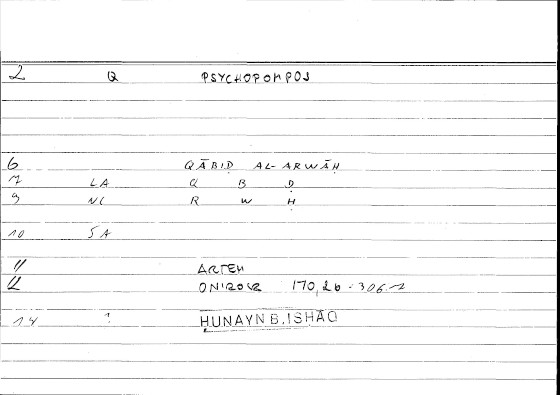 2 Q PSYCHOPOMPOS
6 QĀBIḌ AL-ARWĀḤ
7 LA Q B Ḍ
9 NC R W Ḥ
10 SA
11 ARTEM
12 ONIROCR 170,26 - 306.2
14 ? HUNAYN B. ISHAQ